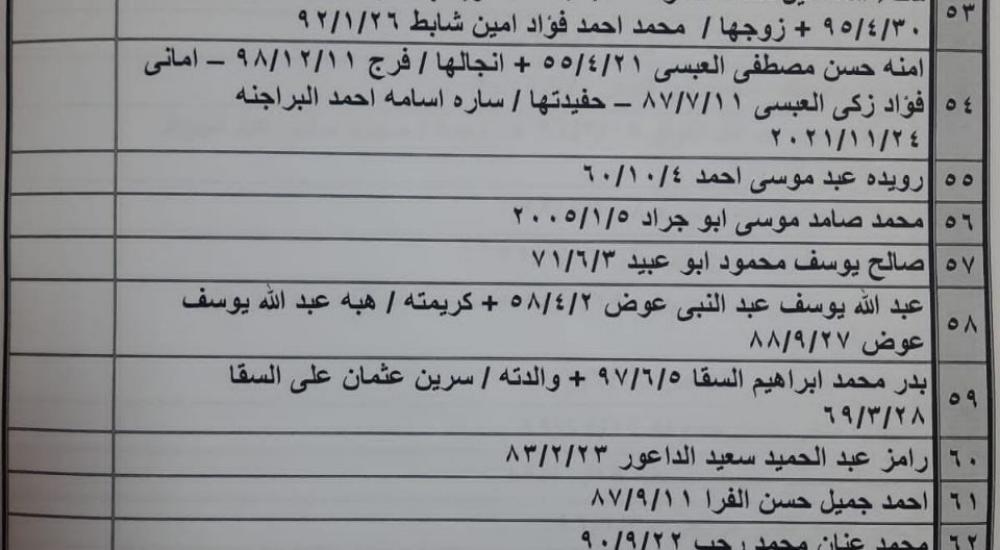 ٥٣
٩٥/٤/٣٠ + زوجها / محمد احمد فؤاد امين شابط ٩٢/١/٢٦
امنه حسن مصطفى العبسى ٥٥/٤/٢١ + انجالها / فرج ٩٨/١٢/١١ – امانى
٥٤ فؤاد زكى العبسى ٨٧/٧/١١ – حفيدتها / ساره اسامه احمد البراجنه
٢٠٢١/١١/٢٤
٥٥ رويده عبد موسى احمد ٦٠/١٠/٤
٥٦ محمد صامد موسى ابو جراد ٢٠٠٥/١/٥
٥٧ صالح يوسف محمود ابو عبيد ٧١/٦/٣
٥٨ عبد الله يوسف عبد النبى عوض ٥٨/٤/٢ + كريمته / هبه عبد الله يوسف
عوض ٨٨/٩/٢٧
٥٩ بدر محمد ابراهيم السقا ٩٧/٦/٥ + والدته / سرين عثمان على السقا
٦٩/٣/٢٨
٦٠ رامز عبد الحميد سعيد الداعور ٨٣/٢/٢٣
٦١ احمد جميل حسن الفرا ٨٧/٩/١١
٦٢ محمد عنان محمد رجب ٩٠/٩/٢٢